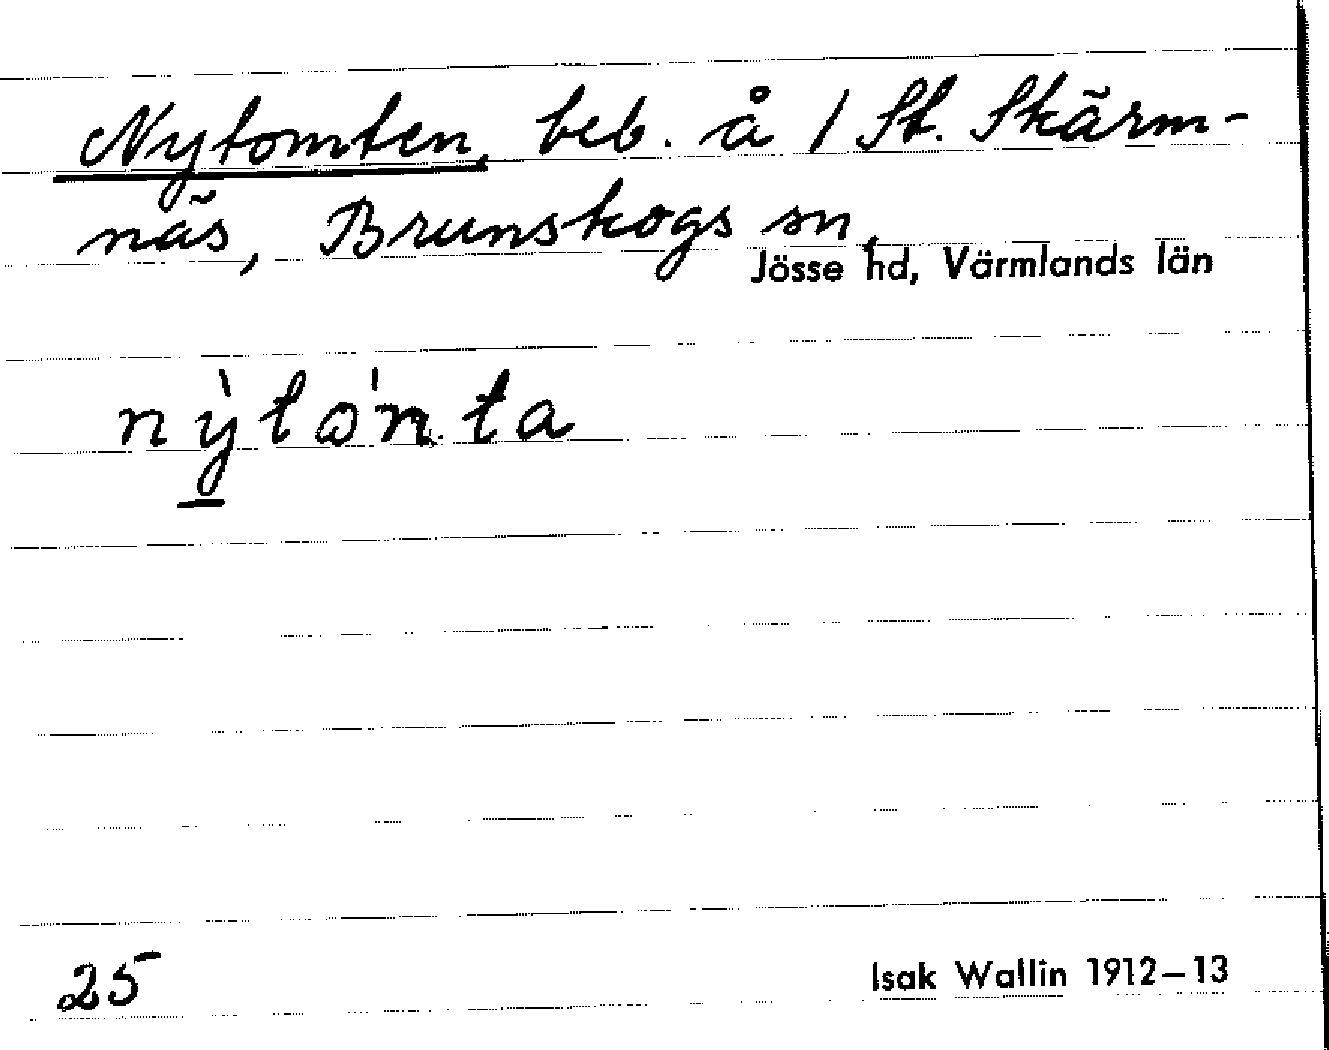 Nytomten, beb. å / St. Skärm-
näs, Brunskogs sn,
Jösse hd, Värmlands län
nỳtω'nta
25
Isak Wallin 1912–13